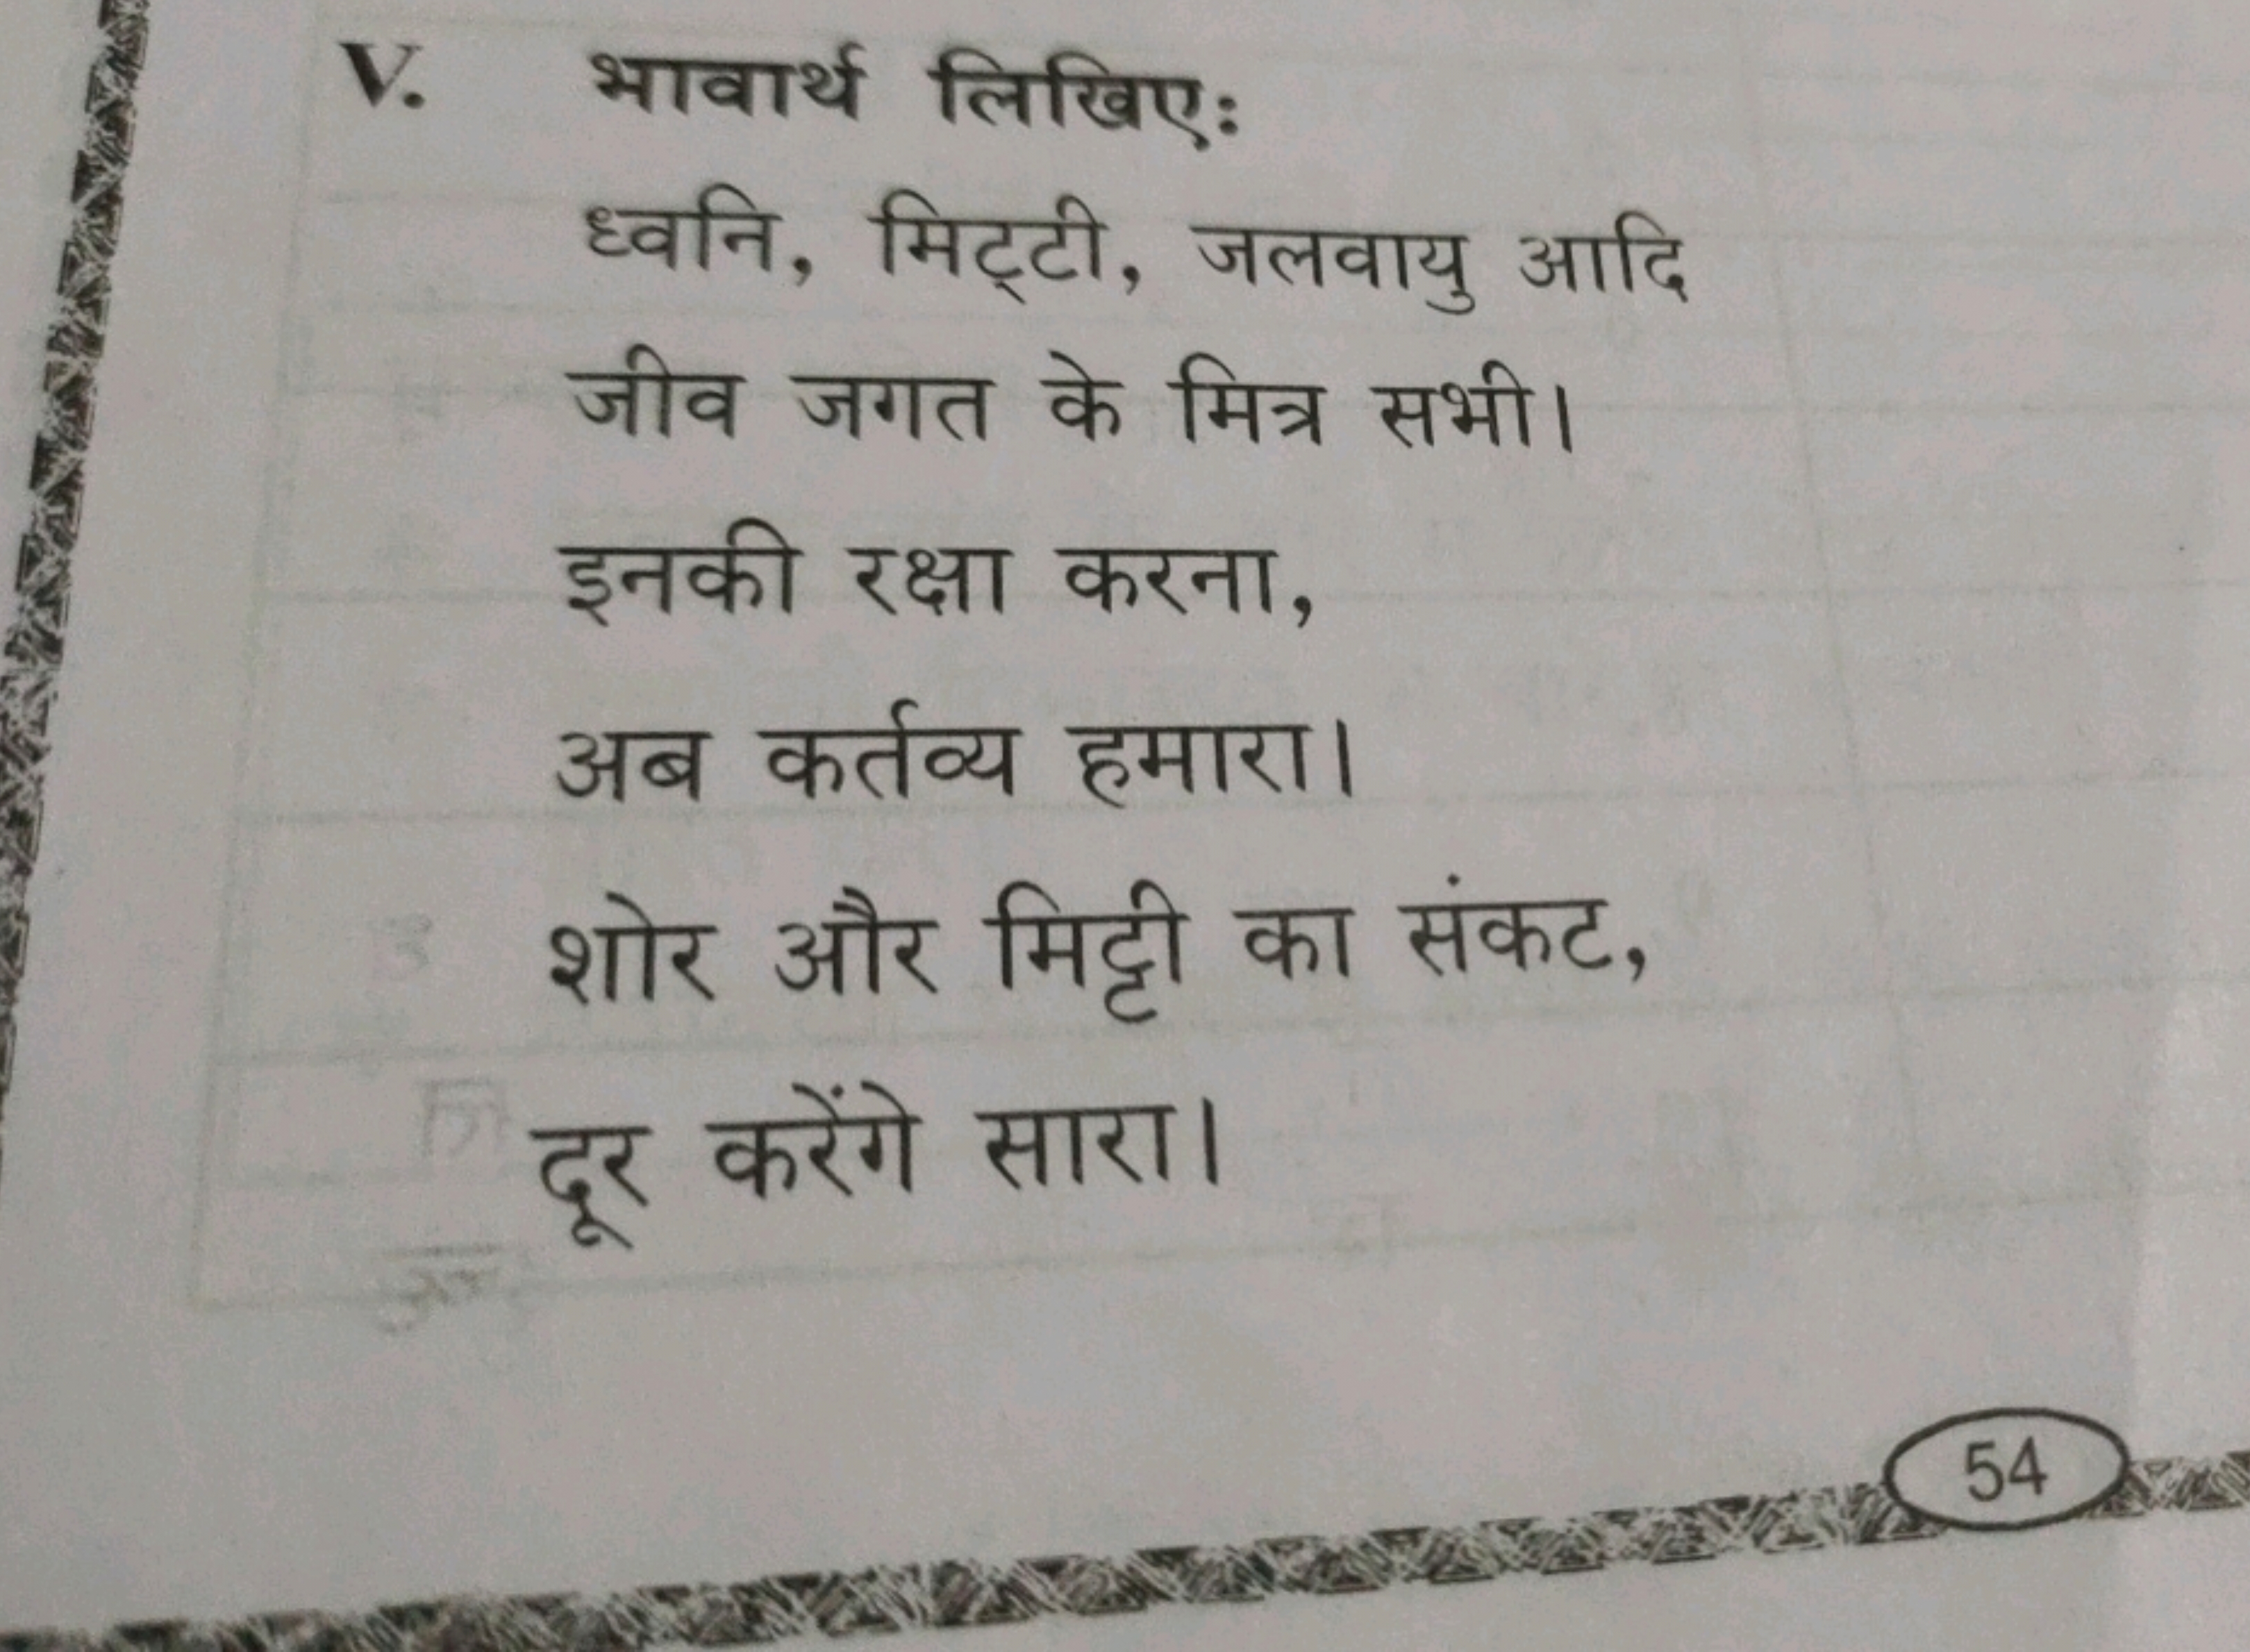 V. भावार्थ लिखिए:
ध्वनि, मिट्‌टी, जलवायु आदि
जीव जगत के मित्र सभी।
इनकी रक्षा करना,
अब कर्तव्य हमारा।
शोर और मिट्टी का संकट,
दूर करेंगे सारा।
54